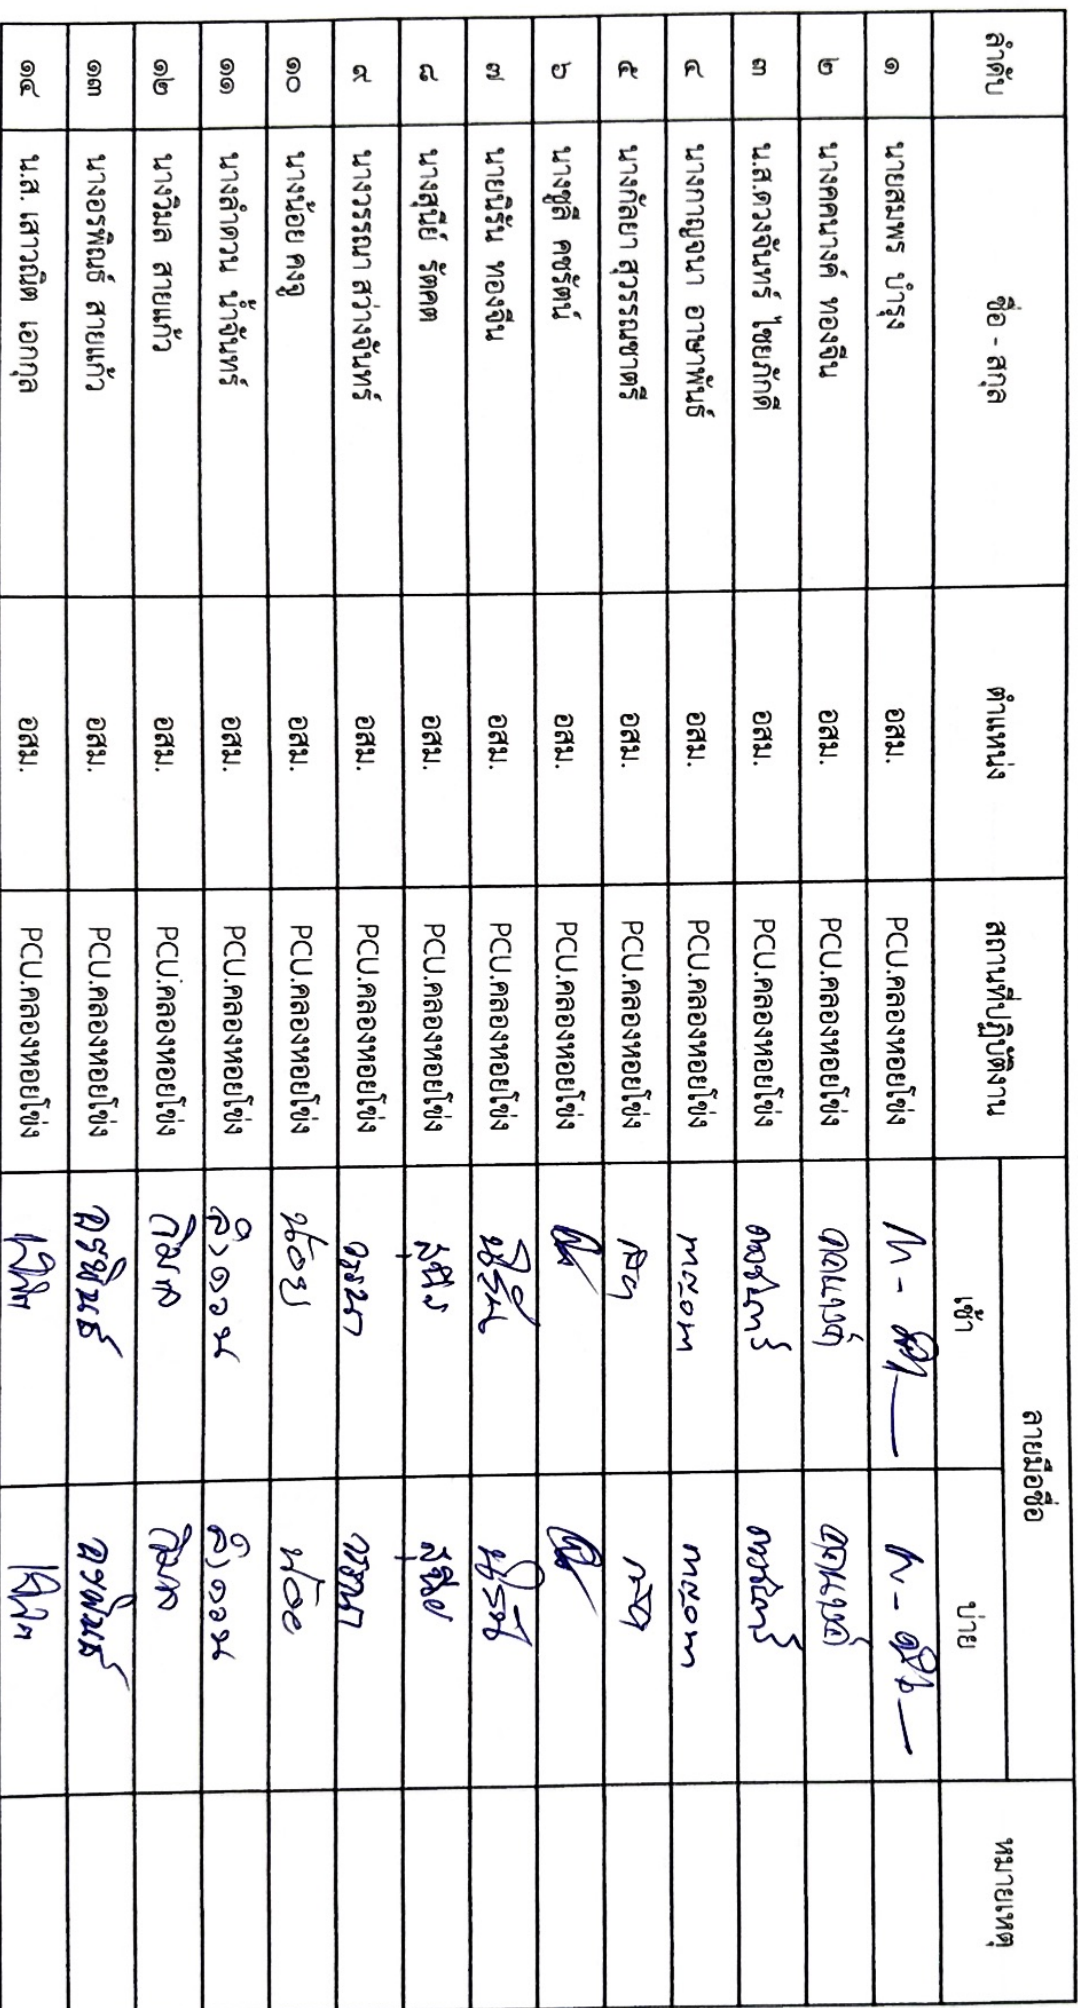 ลำดับ ชื่อ - สกุล ตำแหน่ง สถานที่ปฏิบัติงาน ลายมือชื่อ หมายเหตุ
เช้า บ่าย
๑ นายสมพร บำรุง อสม. PCU.คลองหอยโข่ง
๒ นางคคนางค์ ทองจีน อสม. PCU.คลองหอยโข่ง คคนางค์ คคนางค์
๓ น.ส.ดวงจันทร์ ไชยภักดี อสม. PCU.คลองหอยโข่ง ดวงจันทร์ ดวงจันทร์
๔ นางกาญจนา อาษาพันธ์ อสม. PCU.คลองหอยโข่ง
๕ นางกัลยา สุวรรณชาตรี อสม. PCU.คลองหอยโข่ง
๖ นางชูลี คชรัตน์ อสม. PCU.คลองหอยโข่ง
๗ นายนิรัน ทองจีน อสม. PCU.คลองหอยโข่ง นิรัน นิรัน
๘ นางสุนีย์ รัตคต อสม. PCU.คลองหอยโข่ง สุนีย์ สุนีย์
๙ นางวรรณา สว่างจันทร์ อสม. PCU.คลองหอยโข่ง วรรณา วรรณา
๑๐ นางน้อย คงจู อสม. PCU.คลองหอยโข่ง น้อย น้อย
๑๑ นางลำดวน น้ำจันทร์ อสม. PCU.คลองหอยโข่ง ลำดวน ลำดวน
๑๒ นางวิมล สายแก้ว อสม. PCU.คลองหอยโข่ง วิมล วิมล
๑๓ นางอรพิณธ์ สายแก้ว อสม. PCU.คลองหอยโข่ง อรพินธ์ อรพินธ์
๑๔ น.ส. เสาวณิต เอกกุล อสม. PCU.คลองหอยโข่ง